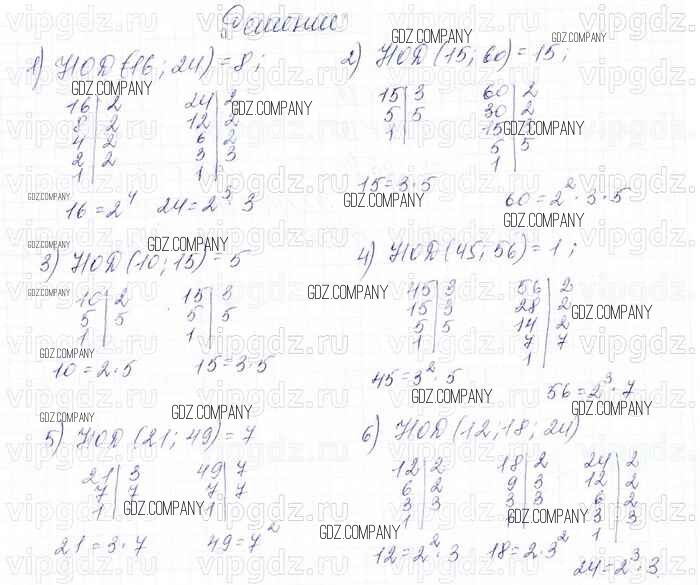 Решение
1) НОД (16; 24) = 8;
16 | 2
8 | 2
4 | 2
2 | 2
1 |
24 | 2
12 | 2
6 | 2
3 | 3
1 |
16 = 2⁴ 24 = 2³ · 3
2) НОД (15; 60) = 15;
15 | 3
5 | 5
1 |
60 | 2
30 | 2
15 |
5 | 5
1 |
15 = 3 · 5
60 = 2² · 3 · 5
3) НОД (10; 15) = 5
10 | 2
5 | 5
1 |
15 | 3
5 | 5
1 |
10 = 2 · 5 15 = 3 · 5
4) НОД (45; 56) = 1;
45 | 3
15 | 3
5 | 5
1 |
56 | 2
28 | 2
14 | 2
7 | 7
1 |
45 = 3² · 5
56 = 2³ · 7
5) НОД (21; 49) = 7
21 | 3
7 | 7
1 |
49 | 7
7 | 7
1 |
21 = 3 · 7 49 = 7²
6) НОД (12; 18; 24)
12 | 2
6 | 2
3 | 3
1 |
18 | 2
9 | 3
3 | 3
24 | 2
12 | 2
6 | 2
3 | 3
1 |
12 = 2² · 3 18 = 2 · 3²
24 = 2³ · 3
GDZ.COMPANY
vipgdz.ru